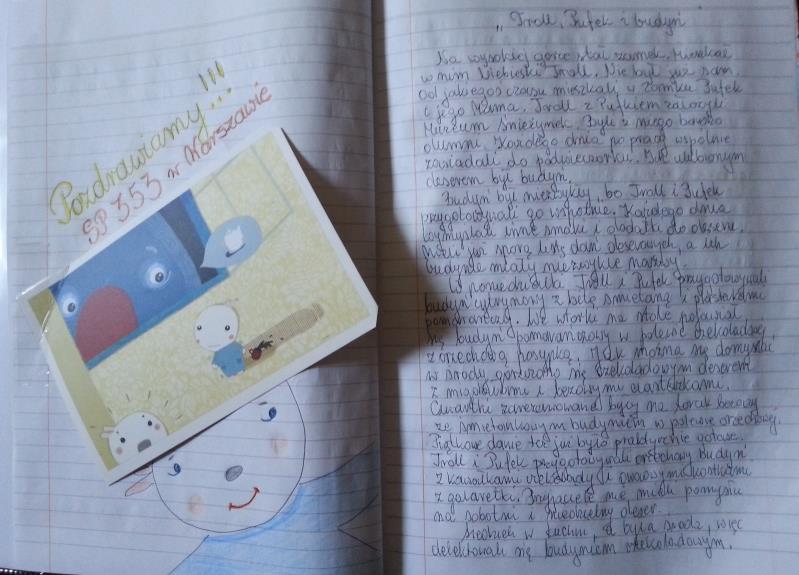 Pozdrawiamy!!!
SP 353 w Warszawie
"Troll, Pufek i budyń"
Na wysokiej górze stał zamek. Mieszkał
w nim Niebieski Troll. Nie był już sam.
Od jakiegoś czasu mieszkali w zamku Pufek
i jego Mama. Troll z Pufkiem założyli
Muzeum Śnieżynek. Byli z niego bardzo
dumni. Każdego dnia po pracy wspólnie
zasiadali do podwieczorku. Ich ulubionym
deserem był budyń.
Budyń był niezwykły, bo Troll i Pufek
przygotowywali go wspólnie. Każdego dnia
wymyślali inne smaki i dodatki do deseru.
Mieli już sporą listę dań deserowych, a ich
budynie miały niezwykłe nazwy.
W poniedziałek Troll i Pufek przygotowywali
budyń cytrynowy z bitą śmietaną i plasterkami
pomarańczy. We wtorki na stole pojawiał
się budyń pomarańczowy w polewie czekoladowej
z orzechową posypką. Jak można się domyślić
w środy goszczono się czekoladowym deserem
z i bezowymi ciasteczkami.
Czwartki zarezerwowane były na torcik bezowy
ze śmietankowym budyniem w polewie orzechowej.
Piątkowe danie też już było praktycznie gotowe.
Troll i Pufek przygotowywali orzechowy budyń
z kawałkami czekolady i owocowymi kostkami
z galaretki. Przyjaciele nie mieli pomysłu
na sobotni i niedzielny deser.
Siedzieli w kuchni, a była środa, więc
delektowali się budyniem czekoladowym.